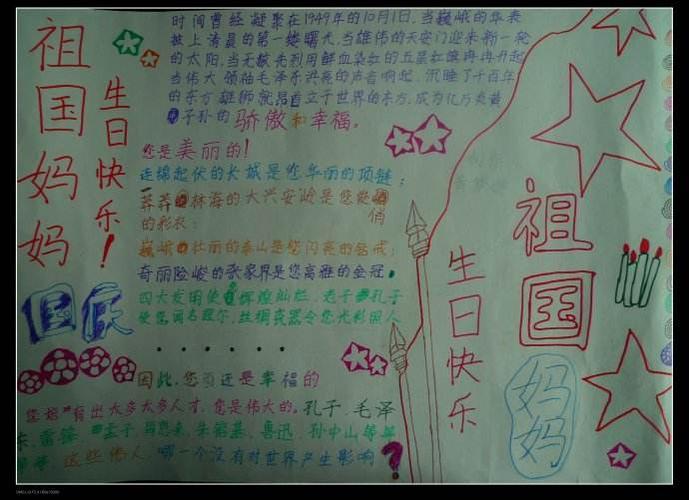 祖国妈妈
生日快乐！
国庆
时间曾经凝聚在1949年的10月1日,当巍峨的华表
披上清晨的第一缕曙光,当雄伟的天安门迎来新一轮
的太阳,当无数先烈用鲜血染红的五星红旗冉冉升起
当伟大领袖毛泽东洪亮的声音响起,沉睡了千百年
的东方雄狮就昂首立于世界的东方,成为亿万炎黄
子孙的骄傲和幸福。
您是美丽的!
连绵起伏的长城是您华丽的项链;
莽莽林海的大兴安岭是您俊俏
的彩衣;
巍峨壮丽的泰山是您闪亮的
奇丽险峻的张家界是您高雅的金冠。
四大发明使您辉煌灿烂,老子孔子
使您闻名遐尔,丝绸瓷器令您光彩照人
......
因此,您还是幸福的
您有出太多太多人才,您是伟大的。孔子.毛泽
东.雷锋.孟子.周恩来.朱德.鲁迅.孙中山等等
这些伟人,哪一个没有对世界产生影响?
祖国妈妈
生日快乐